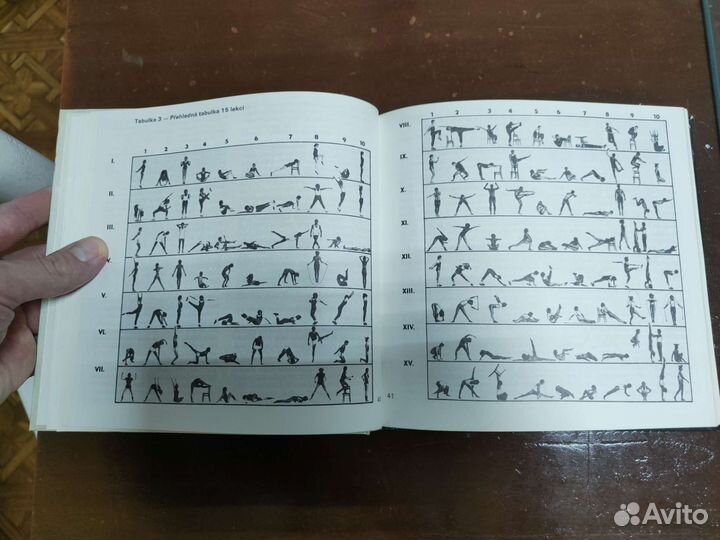 Tabulka 3 — Přehledná tabulka 15 lekcí
1 2 3 4 5 6 7 8 9 10
I.
II.
III.
V.
VI.
VII.
1 2 3 4 5 6 7 8 9 10
VIII.
IX.
X.
XI.
XII.
XIII.
XIV.
XV.
41
Avito